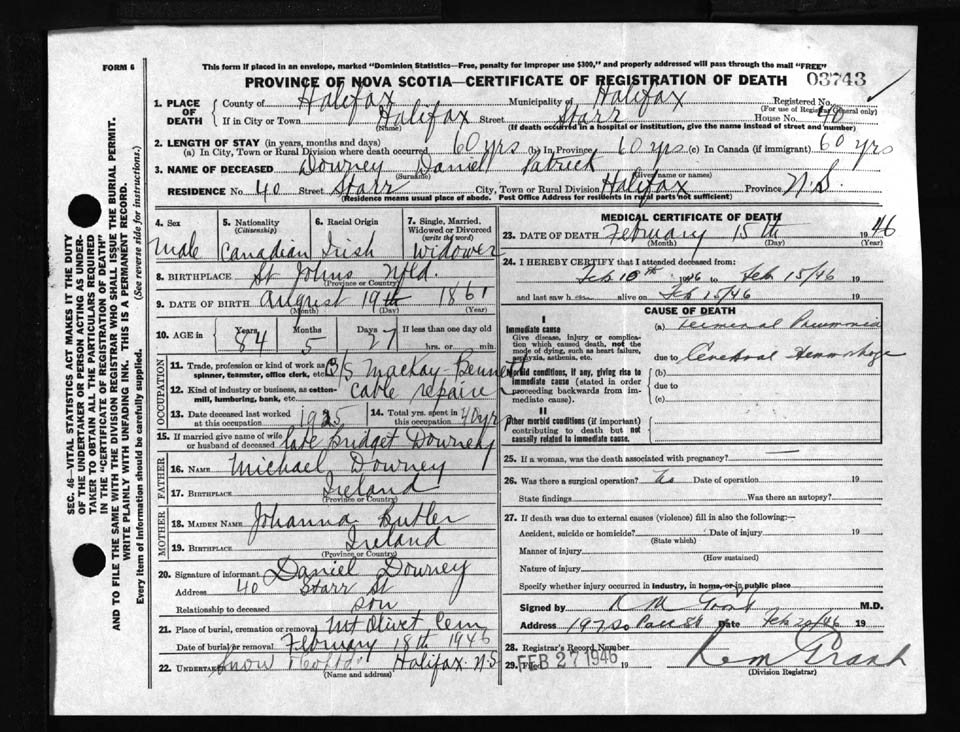 FORM 6
This form if placed in an envelope, marked "Dominion Statistics—Free, penalty for improper use $300," and properly addressed will pass through the mail "FREE"
PROVINCE OF NOVA SCOTIA—CERTIFICATE OF REGISTRATION OF DEATH 03743
1. PLACE OF DEATH County of Halifax Municipality of Halifax Registered No.
(For use of Registrar General only)
If in City or Town Halifax Street Starr House No. 40
(Name) (If death occurred in a hospital or institution, give the name instead of street and number)
2. LENGTH OF STAY (in years, months and days)
(a) In City, Town or Rural Division where death occurred 60 yrs (b) In Province 60 yrs (c) In Canada (if immigrant) 60 yrs
3. NAME OF DECEASED Downey Daniel Patrick
(Surname) (Given name or names)
RESIDENCE No. 40 Street Starr City, Town or Rural Division Halifax Province N.S.
(Residence means usual place of abode. Post Office Address for residents in rural parts not sufficient)
4. Sex Male
5. Nationality (Citizenship) Canadian
6. Racial Origin Irish
7. Single, Married, Widowed or Divorced (write the word) Widower
8. BIRTHPLACE St Johns Nfld.
(Province or Country)
9. DATE OF BIRTH August 19th 1861
(Month) (Day) (Year)
10. AGE in Years 84 Months 5 Days 27 If less than one day old
hrs. or min.
OCCUPATION
11. Trade, profession or kind of work as spinner, teamster, office clerk, etc. C/S Mackay-Bennett
12. Kind of industry or business, as cotton-mill, lumbering, bank, etc. cable repair
13. Date deceased last worked at this occupation 1925 14. Total yrs. spent in this occupation 40 yrs
15. If married give name of wife or husband of deceased late Bridget Downey
FATHER
16. NAME Michael Downey
17. BIRTHPLACE Ireland
(Province or Country)
MOTHER
18. MAIDEN NAME Johanna Butler
19. BIRTHPLACE Ireland
(Province or Country)
20. Signature of informant Daniel Downey
Address 40 Starr St
Relationship to deceased son
21. Place of burial, cremation or removal Mt Olivet Cem
Date of burial or removal February 18th 1946
22. Undertaker Snow Halifax N.S.
(Name and address)
MEDICAL CERTIFICATE OF DEATH
23. DATE OF DEATH February 15th 1946
(Month) (Day) (Year)
24. I HEREBY CERTIFY that I attended deceased from:
Feb 10th 1946 to Feb 15/46 19
and last saw h alive on Feb 15/46 19
CAUSE OF DEATH
I
Immediate cause
Give disease, injury or complication which caused death, not the mode of dying, such as heart failure, asphyxia, asthenia, etc.
(a) Terminal Pneumonia
due to Cerebral Hemorrhage
Morbid conditions, if any, giving rise to immediate cause (stated in order proceeding backwards from immediate cause).
(b)
due to
(c)
II
Other morbid conditions (if important) contributing to death but not causally related to immediate cause.
25. If a woman, was the death associated with pregnancy? —
26. Was there a surgical operation? No Date of operation 19
State findings Was there an autopsy?
27. If death was due to external causes (violence) fill in also the following:—
Accident, suicide or homicide? Date of injury 19
(State which)
Manner of injury
(How sustained)
Nature of injury
Specify whether injury occurred in industry, in home, or in public place
Signed by K M Grant M.D.
Address 197 So Park St Date Feb 20/46 19
28. Registrar's Record Number
29. Filed FEB 27 1946 19
(Division Registrar)
SEC. 46—VITAL STATISTICS ACT MAKES IT THE DUTY
OF THE UNDERTAKER OR PERSON ACTING AS UNDER-
TAKER TO OBTAIN ALL THE PARTICULARS REQUIRED
IN THE "CERTIFICATE OF REGISTRATION OF DEATH"
AND TO FILE THE SAME WITH THE DIVISION REGISTRAR WHO SHALL ISSUE THE BURIAL PERMIT.
WRITE PLAINLY WITH UNFADING INK. THIS IS A PERMANENT RECORD.
Every item of information should be carefully supplied. (See reverse side for instructions.)